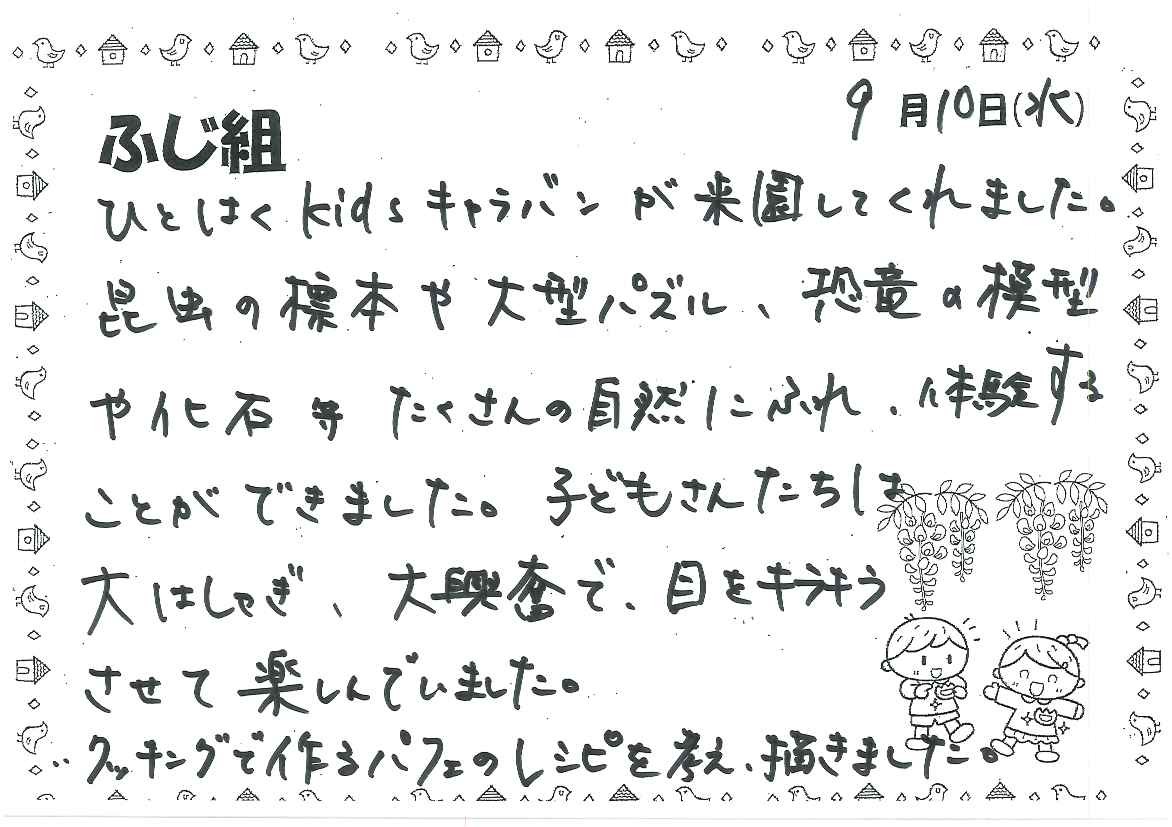 9月10日(水)
ふじ組
ひとはくkidsキャラバンが来園してくれました。
昆虫の標本や大型パズル、恐竜の模型
や化石等たくさんの自然にふれ、体験する
ことができました。子どもさんたちは
大はしゃぎ、大興奮で、目をキラキラ
させて楽しんでいました。
クッキングで作るパフェのレシピを考え、描きました。